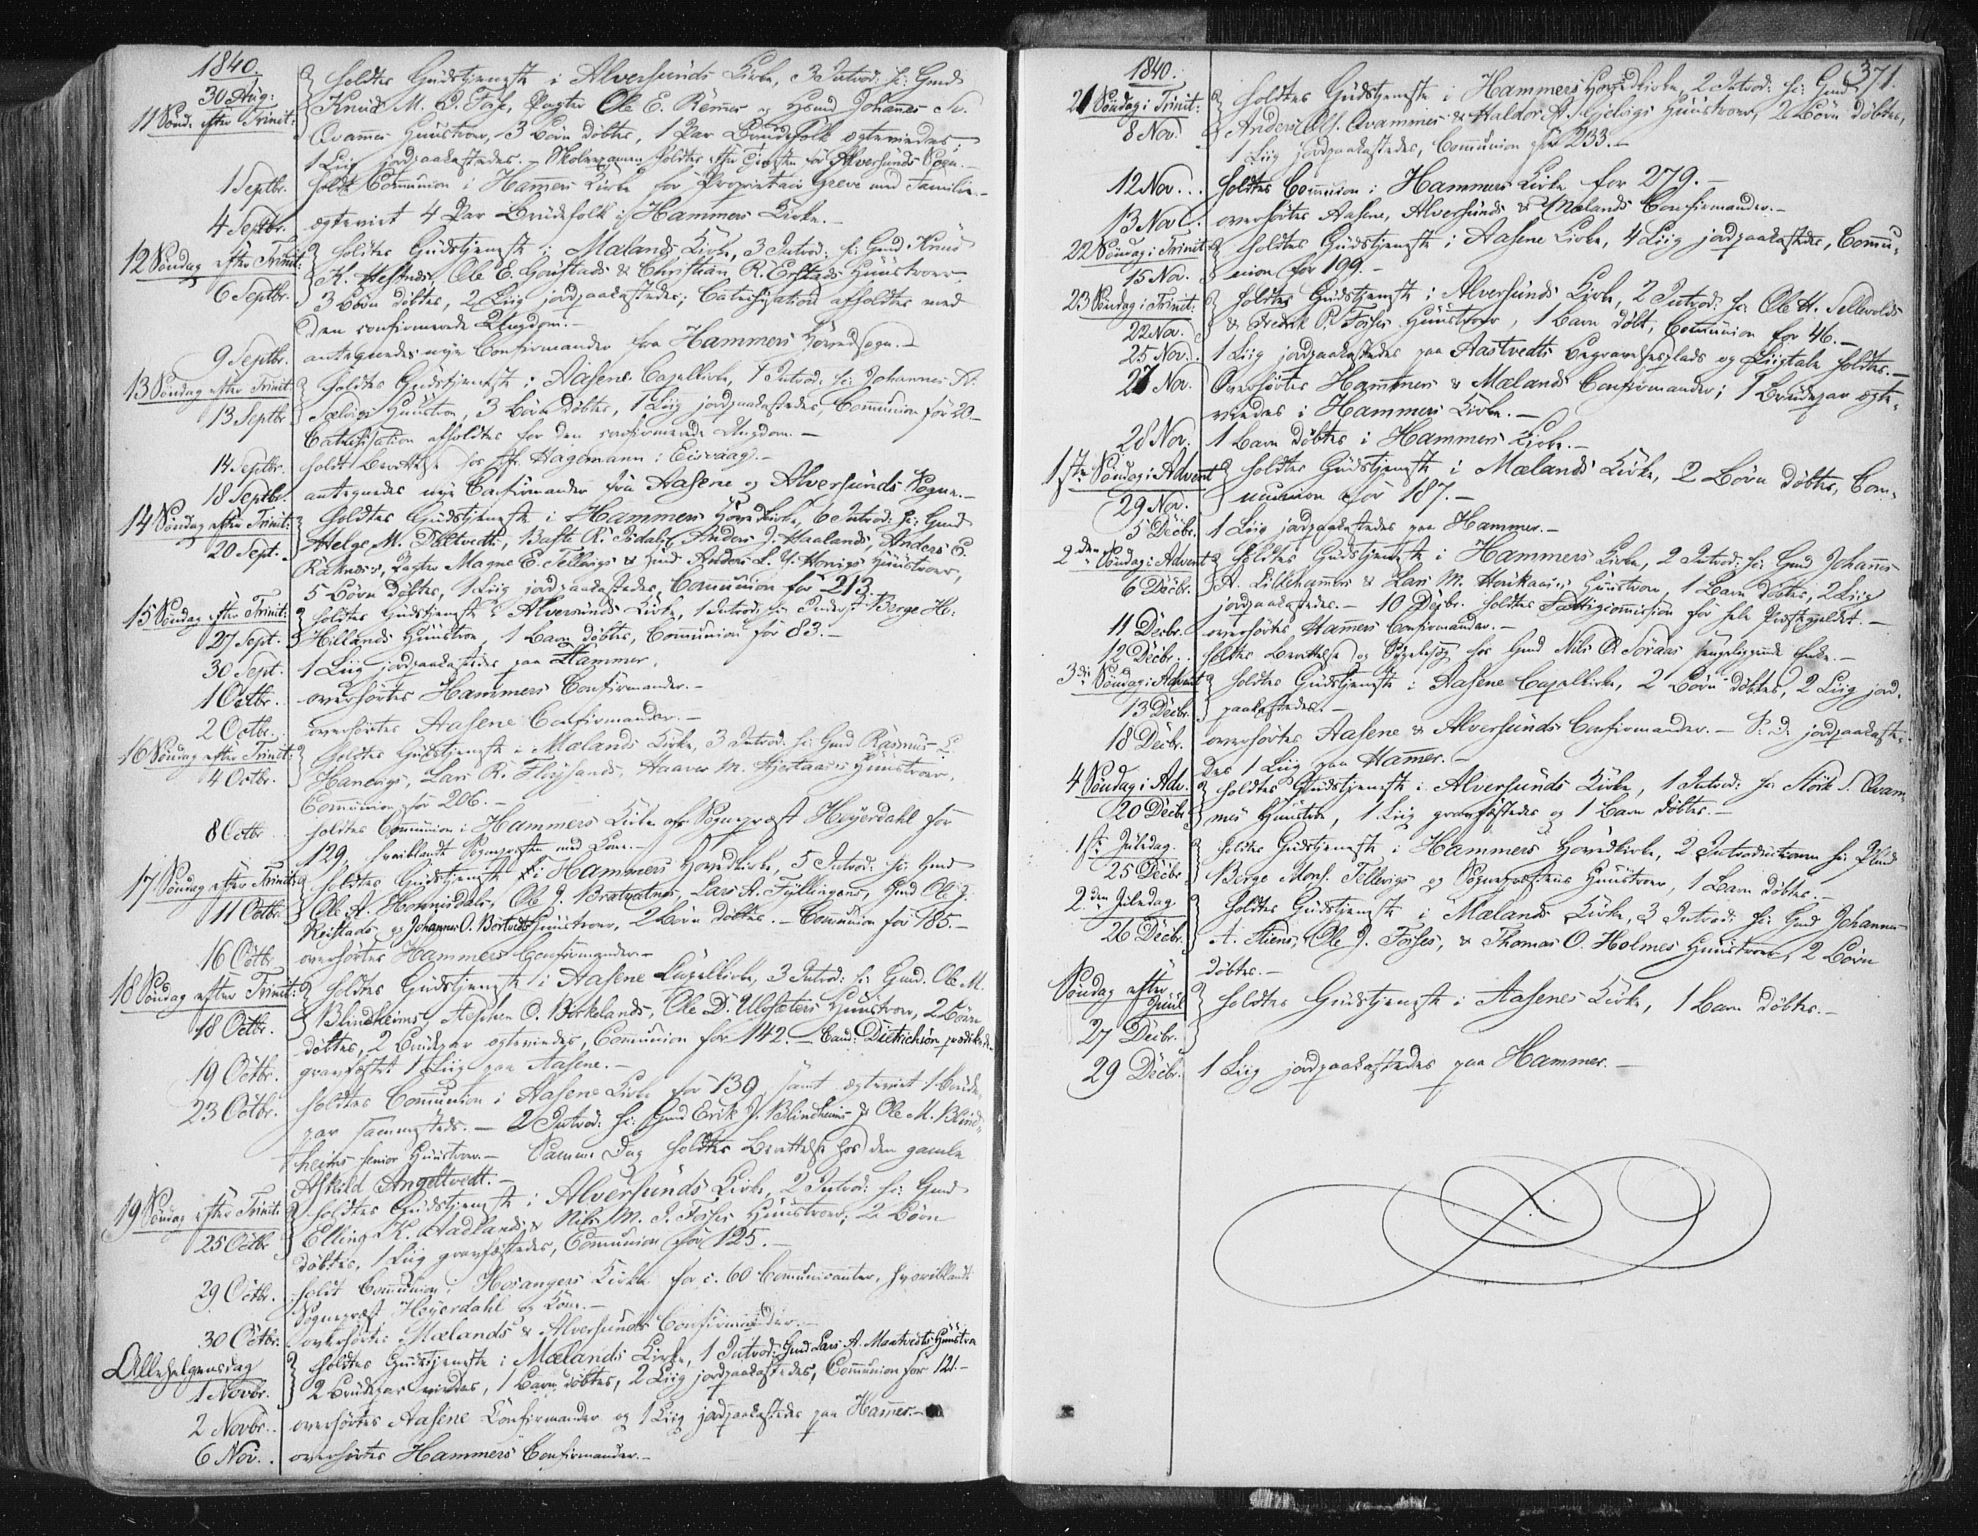 1840.
30 Aug:
11 Sönd. efter Trinit: holdtes Gudstjeneste i Alversunds Kirke, 3 Introd: fr: Gmd
Knud M. Fosse, Pagter Ole E. Rømes og Hsmd Johannes
Qvammes Huustroer, 3 Børn døbtes, 1 Par Brudefolk egteviedes,
1 Liig jordpaakastedes. – Skoleexamen holdtes efter Tjenesten for Alversunds Sogn. –
1 Septbr. holdt Communion i Hammers Kirke for Proprietair Greve med Familie. –
4 Septbr. egteviet 4 Par Brudefolk i Hammers Kirke. –
12 Søndag efter Trinit: holdtes Gudstjeneste i Mælands Kirke, 3 Introd: fr: Gmd Knud
K. Ole E. & Christian R. Huustroer
6 Septbr. 3 Børn døbtes, 2 Liig jordpaakastedes; Catechisation afholdtes med
den confirmerede Ungdom. –
9 Septbr. antegnedes nye Confirmander fra Hammers Hovedsogn. –
13 Søndag efter Trinit: holdtes Gudstjeneste i Aasene Capelkirke, 1 Introd: fr: Johannes A.
13 Septbr. Huustroe, 3 Børn døbtes, 1 Liig jordpaakastedes, Communion for 20 –
Catechisation afholdtes for den confirmerede Ungdom. –
14 Septbr. holdt Berettelse hos Hagemann i Eisvaag. –
18 Septbr. antegnedes nye Confirmander fra Aasene og Alversunds Sogne. –
14 Søndag efter Trinit: holdtes Gudstjeneste i Hammers Hovedkirke, 6 Introd: fr: Gmd
20 Sept. Helge M. Anders J. Haalands, Anders
Pagter Magne E. Tellevigs & Hsmd Anders L. Huustroer,
5 Børn døbtes, 1 Liig jordpaakastedes, Communion for 213.
15 Søndag efter Trinit: holdtes Gudstjeneste i Alversunds Kirke, 1 Introd: fr: Berge H.
27 Sept. Hillands Huustroe, 1 Barn døbtes, Communion for 83. –
30 Sept. 1 Liig jordpaakastedes paa Hammer.
1 Octbr. overhørtes Hammers Confirmander. –
2 Octbr. overhørtes Aasene Confirmander. –
16 Søndag efter Trinit: holdtes Gudstjeneste i Mælands Kirke, 3 Introd: fr: Gmd Rasmus
4 Octbr. Lars R. Fløysands, Haaver M. Hjertaaes Huustroer,
Communion for 206. –
8 Octbr. holdtes Communion i Hammers Kirke af Sognepræst Heyerdahl for
129, hvoriblandt Sognepræsten med Kone. –
17 Søndag efter Trinit: holdtes Gudstjeneste i Hammers Hovedkirke, 5 Introd: fr: Gmd
11 Octbr. Ole A. Ole J. Lars A. Fyllingens, Gmd Ole J.
Reistads og Johannes O. Bortvedts Huustroer, 2 Børn døbtes. – Communion for 185. –
16 Octbr. overhørtes Hammers Confirmander. –
18 Søndag efter Trinit: holdtes Gudstjeneste i Aasene Capelkirke, 3 Introd: fr: Gmd. Ole M.
18 Octbr. Blindheims, Stephen O. Birkelands, Ole D. Ulvsæters Huustroer, 2 Børn
døbtes, 2 Brudepar egteviedes, Communion for 142. – Cand: Dietrichson prædikede. –
19 Octbr. gravfæstet 1 Liig paa Aasene. –
23 Octbr. holdtes Communion i Aasene Kirke for 139 samt egteviet 1 Brude-
par sammesteds. – 2 Introd: fr: Gmd Erik J. Blindheims & Ole M. Blind-
heims senior Huustroer. – Samme Dag holdtes Berettelse hos den gamle
Askild Angeltvedt. –
19 Søndag efter Trinit: holdtes Gudstjeneste i Alversunds Kirke, 2 Introd: fr: Gmd
25 Octbr. Elling K. Aadlands & Nils M. Fosses Huustroer, 2 Børn
døbtes, 1 Liig gravfæstedes, Communion for 125. –
29 Octbr. holdt Communion i Hosangers Kirke for c. 60 Communicanter, hvoriblandt
Sognepræst Heyerdahl og Kone. –
30 Octbr. overhørtes Mælands & Alversunds Confirmander. –
Allehelgensdag holdtes Gudstjeneste i Mælands Kirke, 1 Introd: Gmd Lars A. Mantvedts Huustroe
1 Novbr. 2 Brudepar viedes, 1 Barn døbtes, 2 Liig jordpaakastedes, Communion for 121. –
2 Novbr. overhørtes Aasene Confirmander og 1 Liig jordpaakastedes paa Hammer. –
6 Nov. overhørtes Hammers Confirmander. –
1840. 371.
21 Søndag i Trinit: holdtes Gudstjeneste i Hammers Hovedkirke, 2 Introd: fr: Gmd
8 Nov. Anders Qvammes & Haldor A. Gjelvigs Huustroer, 2 Børn døbtes,
1 Liig jordpaakastedes, Communion for 233. –
12 Nov. holdtes Communion i Hammers Kirke for 279. –
13 Nov. overhørtes Aasene, Alversunds & Mælands Confirmander. –
22 Søndag i Trinit holdtes Gudstjeneste i Aasene Kirke, 4 Liig jordpaakastedes, Commu-
15 Nov. nion for 199. –
23 Søndag i Trinit: holdtes Gudstjeneste i Alversunds Kirke, 2 Introd: fr: Ole H. Tellevolds
22 Nov. & Fredrik P. Fosses Huustroer, 1 Barn døbt, Communion for 46. –
25 Nov. 1 Liig jordpaakastedes paa Aastvedts Begravelsesplads og Liigtale holdtes. –
27 Nov. Overhørtes Hammers & Mælands Confirmander; 1 Brudepar egte-
viedes i Hammers Kirke. –
28 Nov. 1 Barn døbtes i Hammers Kirke. –
1ste Søndag i Advent holdtes Gudstjeneste i Mælands Kirke, 2 Børn døbtes, Com-
29 Nov. munion for 187. –
5 Decbr. 1 Liig jordpaakastedes paa Hammer. –
2den Søndag i Advent holdtes Gudstjeneste i Hammers Kirke, 2 Introd: fr: Gmd Johannes
6 Decbr. A. Lillehammers & Lars M. Huustroer, 1 Barn døbtes, 2 Liig
jordpaakastedes. – 10 Decbr. holdtes Fattigcommission for hele Præstegjeldet. –
11 Decbr. overhørtes Hammers Confirmander. –
12 Decbr. holdtes Berettelse og Sygebesøg hos Gmd Nils O. Soraas sengeliggende Enke. –
3die Søndag i Advent holdtes Gudstjeneste i Aasene Capelkirke, 2 Børn døbtes, 2 Liig jord-
13 Decbr. paakastedes. –
18 Decbr. overhørtes Aasene & Alversunds Confirmander. – S. D. jordpaakaste-
des 1 Liig paa Hamer. –
4 Søndag i Adv. holdtes Gudstjeneste i Alversunds Kirke, 1 Introd: fr: Størk S. Qvam-
20 Decbr. mes Huustroe, 1 Liig gravfæstedes og 1 Barn døbtes. –
1ste Juledag. holdtes Gudstjeneste i Hammers Hovedkirke, 2 Introductioner fr: Gmd
25 Decbr. Berge Mons. Tellevigs og Sognepræstens Huustroer, 1 Barn døbtes. –
2den Juledag. holdtes Gudstjeneste i Mælands Kirke, 3 Introd: fr: Gmd Johannes
26 Decbr. A. Stiens, Ole J. Fosses, & Thomas O. Holmes Huustroer, 2 Børn
døbtes. –
Søndag efter Juul holdtes Gudstjeneste i Aasenes Kirke, 1 Barn døbtes. –
27 Decbr.
29 Decbr. 1 Liig jordpaakastedes paa Hammer. –